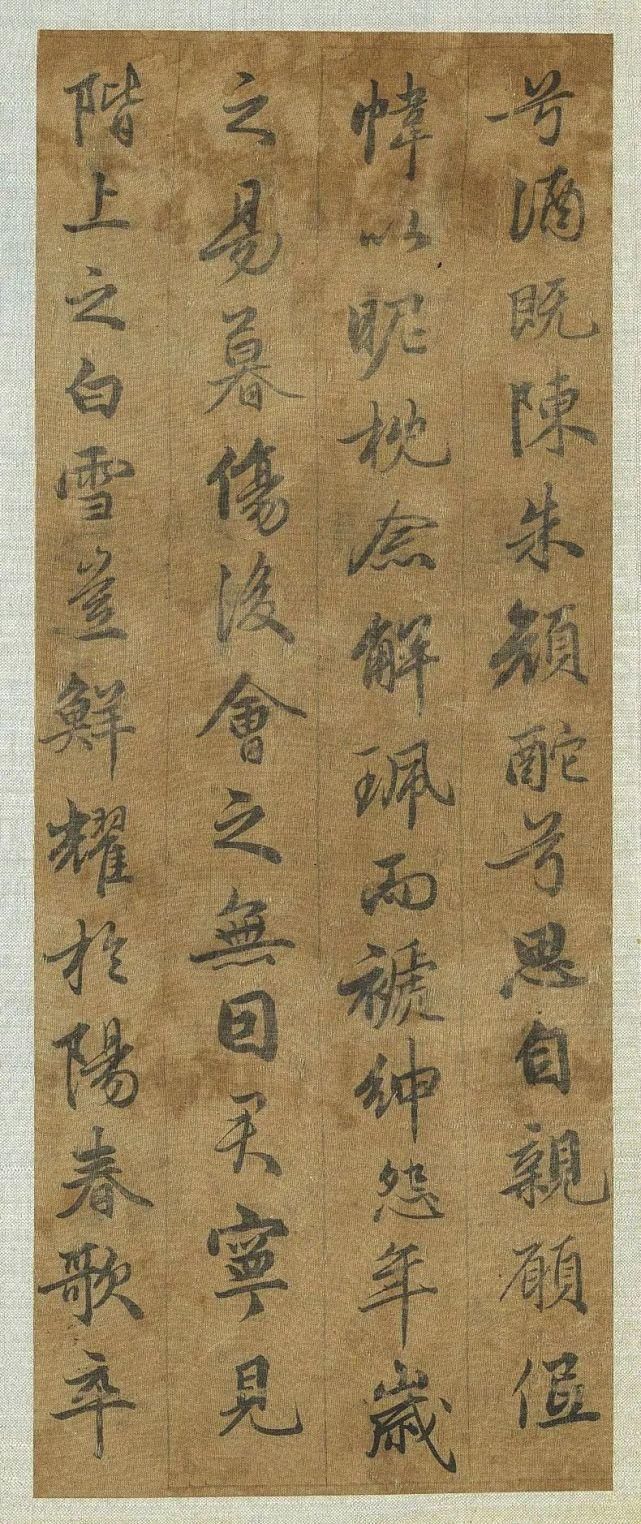 兮酒既陳朱顏酡兮思自親願低
帷以昵枕念解珮而褫紳怨年歲
之易暮傷後會之無因君寧見
階上之白雪豈鮮耀於陽春歌卒